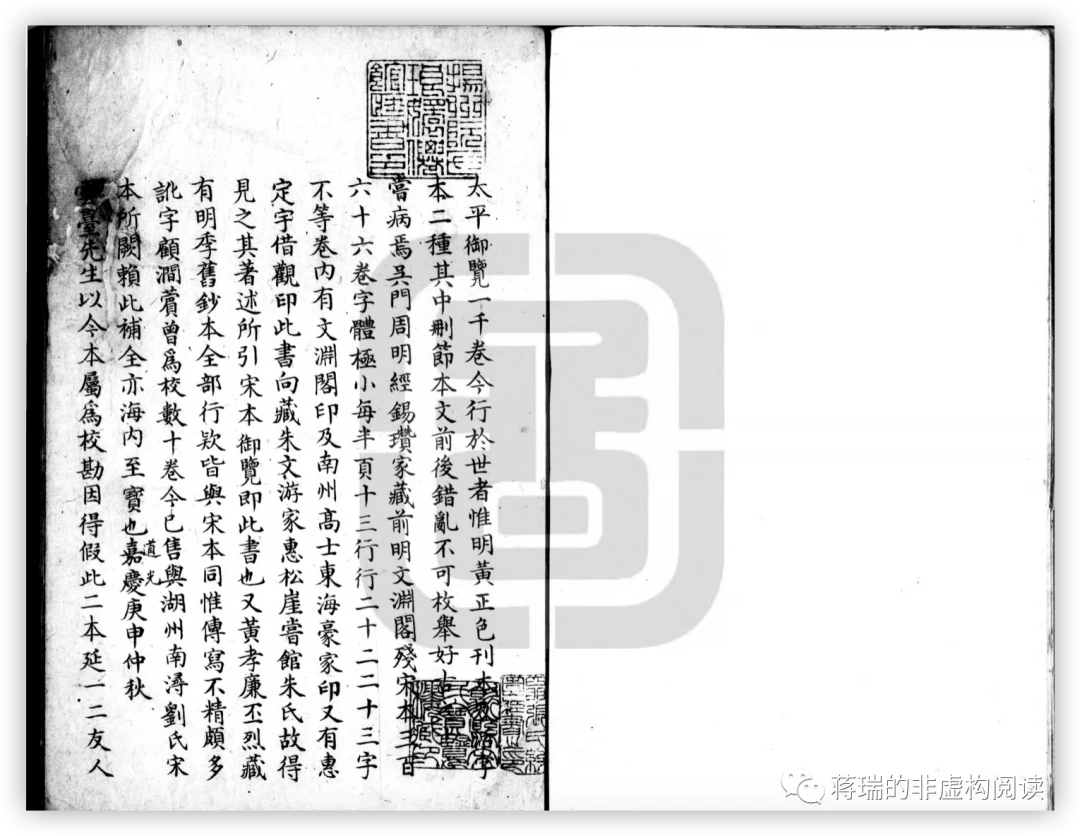 揚州阮氏
琅嬛僊館
藏書印
太平御覽一千卷今行於世者惟明黃正色刊本及活字
本二種其中刪節本文前後錯亂不可枚舉好古
嘗病焉吳門周明經錫瓚家藏前明文淵閣殘宋本三百
六十六卷字體極小每半頁十三行行二十二二十三字
不等卷內有文淵閣印及南州高士東海豪家印又有惠
定宇借觀印此書向藏朱文游家惠松崖嘗館朱氏故得
見之其著述所引宋本御覽即此書也又黃孝廉丕烈藏
有明季舊鈔本全部行欵皆與宋本同惟傳寫不精頗多
訛字顧澗薲曾爲校數十卷今已售與湖州南潯劉氏宋
本所闕賴此補全亦海內至寶也嘉慶庚申仲秋
道光
雲臺先生以今本屬爲校勘因得假此二本延一二友人
蒋瑞的非虚构阅读